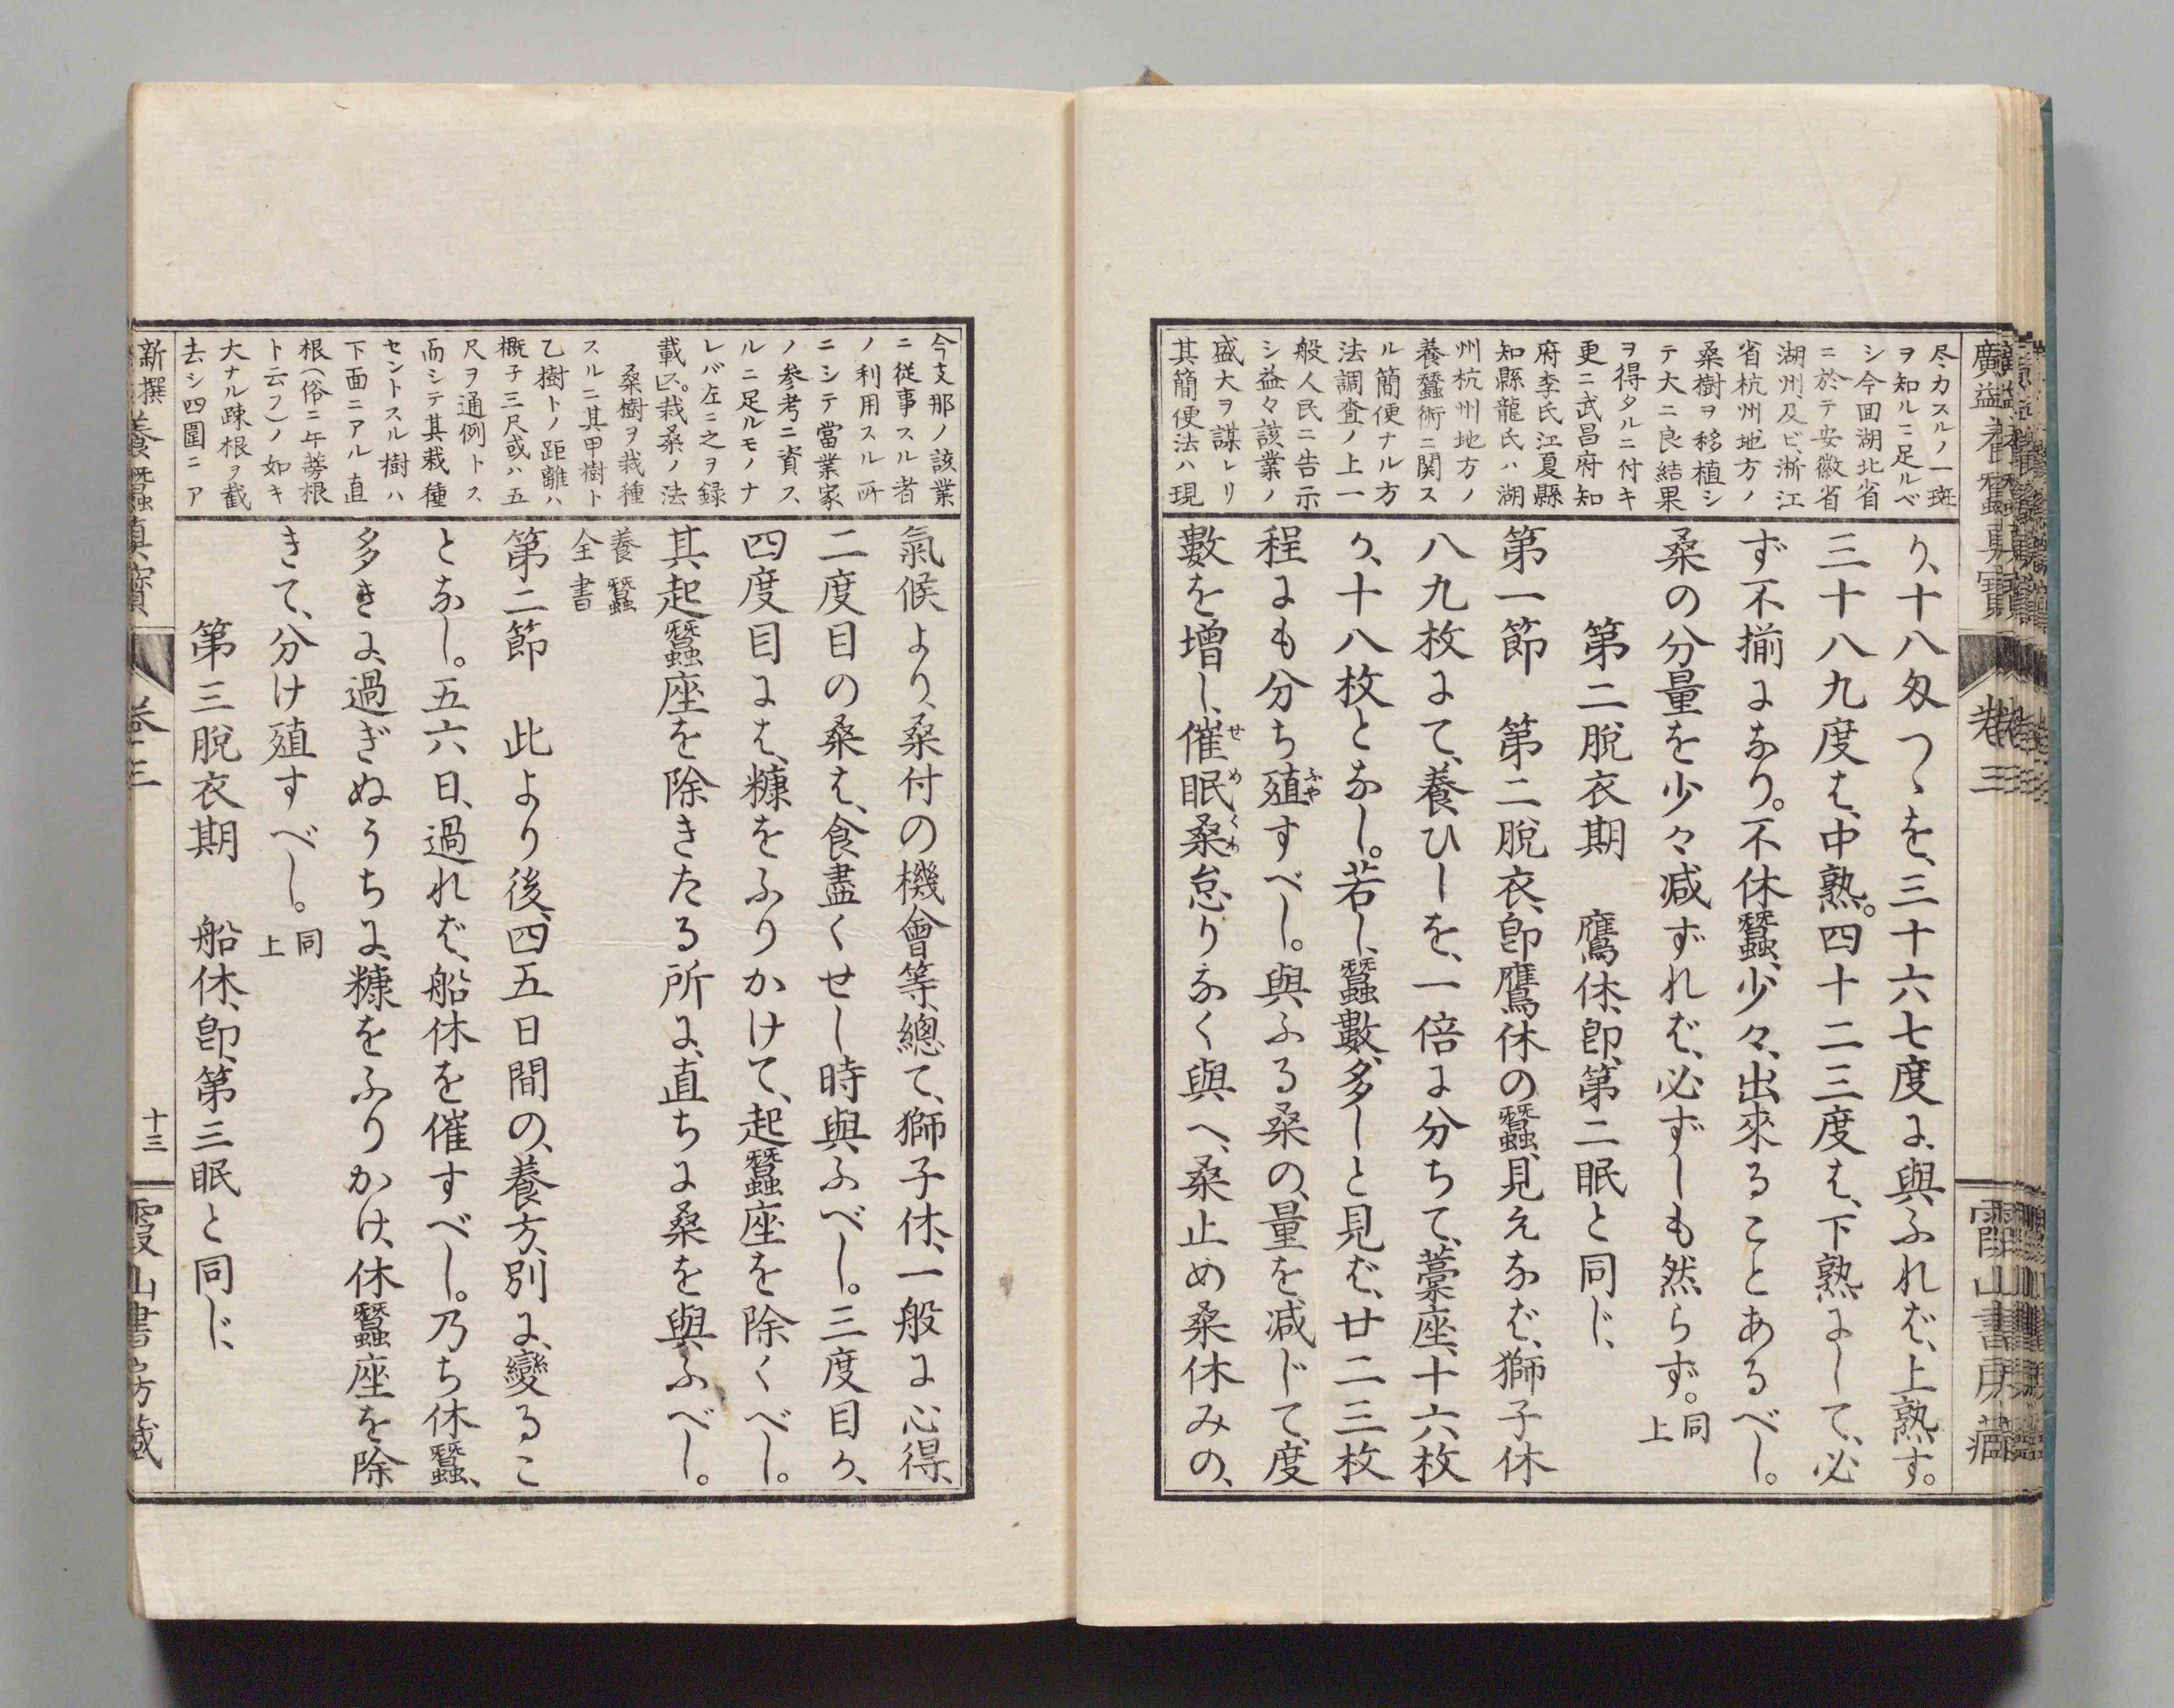 廣益養蠶真寶
卷三
霞山書房藏
尽力スルノ一斑
ヲ知ルニ足ルベ
シ今回湖北省
ニ於テ安徽省
湖州及ビ浙江
省杭州地方ノ
桑樹ヲ移植シ
テ大ニ良結果
ヲ得タルニ付キ
更ニ武昌府知
府李氏江夏縣
知縣龍氏ハ湖
州杭州地方ノ
養蠶術ニ関ス
ル簡便ナル方
法調査ノ上一
般人民ニ告示
シ益々該業ノ
盛大ヲ謀レリ
其簡便法ハ現
り、十八匁つゝを、三十六七度に、與ふれば、上熟す。
三十八九度は、中熟。四十二三度は、下熟にして、必
ず不揃になり。不休蠶、少々、出來ることあるべし。
桑の分量を少々減ずれば、必ずしも然らず。同上
第二脱衣期　鷹休、卽、第二眠と同じ、
第一節　第二脱衣、卽鷹休の蠶、見えなば、獅子休
八九枚にて、養ひしを、一倍に分ちて、藁座、十六枚
か、十八枚となし。若し、蠶數、多しと見ば、廿二三枚
程にも分ち殖すべし。與ふる桑の、量を、減じて、度
數を增し、催眠桑怠りなく與へ、桑止め桑休みの、
ふや
せめくわ
今支那ノ該業
ニ従事スル者
ノ利用スル所
ニシテ當業家
ノ参考ニ資ス
ルニ足ルモノナ
レバ左ニ之ヲ録
載ス。栽桑ノ法
桑樹ヲ栽種
スルニ其甲樹ト
乙樹トノ距離ハ
概子三尺或ハ五
尺ヲ通例トス
而シテ其栽種
セントスル樹ハ
下面ニアル直
根(俗ニ午蒡根
ト云フ)ノ如キ
大ナル疎根ヲ截
去シ四圍ニア
氣候より、桑付の機會等、總て、獅子休、一般に心得、
二度目の桑は、食盡くせし時與ふべし。三度目か、
四度目には、糠をふりかけて、起蠶座を除くべし。
其起蠶座を除きたる所に、直ちに桑を與ふべし。
養蠶
全書
第二節　此より後、四五日間の、養方、別に、變るこ
となし。五六日、過れば、船休を催すべし。乃ち休蠶、
多きに、過ぎぬうちに、糠をふりかけ、休蠶座を除
きて、分け殖すべし。同上
第三脱衣期　船休、卽、第三眠と同じ、
新撰養蠶真寶
卷三
十三
霞山書房藏